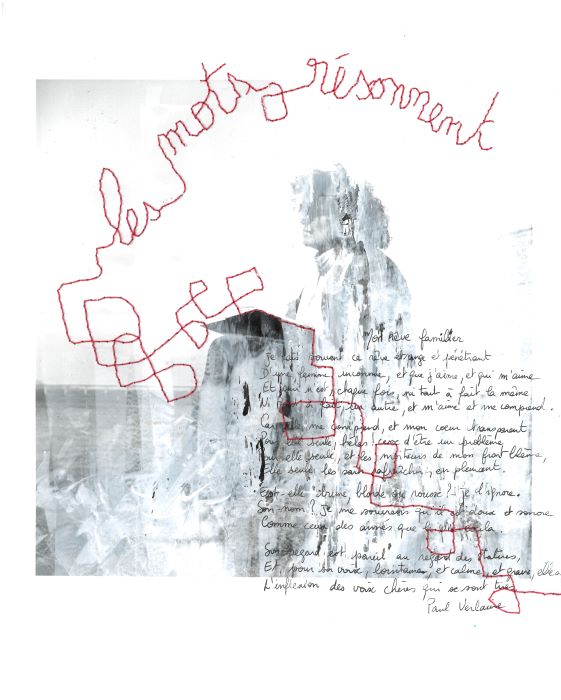 les mots résonnent
Mon rêve familier
Je fais souvent ce rêve étrange et pénétrant
D'une femme inconnue, et que j'aime, et qui m'aime
Et qui n'est, chaque fois, ni tout à fait la même
Ni tout à fait une autre, et m'aime et me comprend.
Car elle me comprend, et mon cœur transparent
Pour elle seule, hélas! cesse d'être un problème
Pour elle seule, et les moiteurs de mon front blême,
Elle seule les sait rafraîchir, en pleurant.
Est-elle brune, blonde ou rousse? - je l'ignore.
Son nom? Je me souviens qu'il est doux et sonore
Comme ceux des aimés que la vie exila.
Son regard est pareil au regard des statues,
Et, pour sa voix, lointaine, et calme, et grave, elle a
L'inflexion des voix chères qui se sont tues
Paul Verlaine